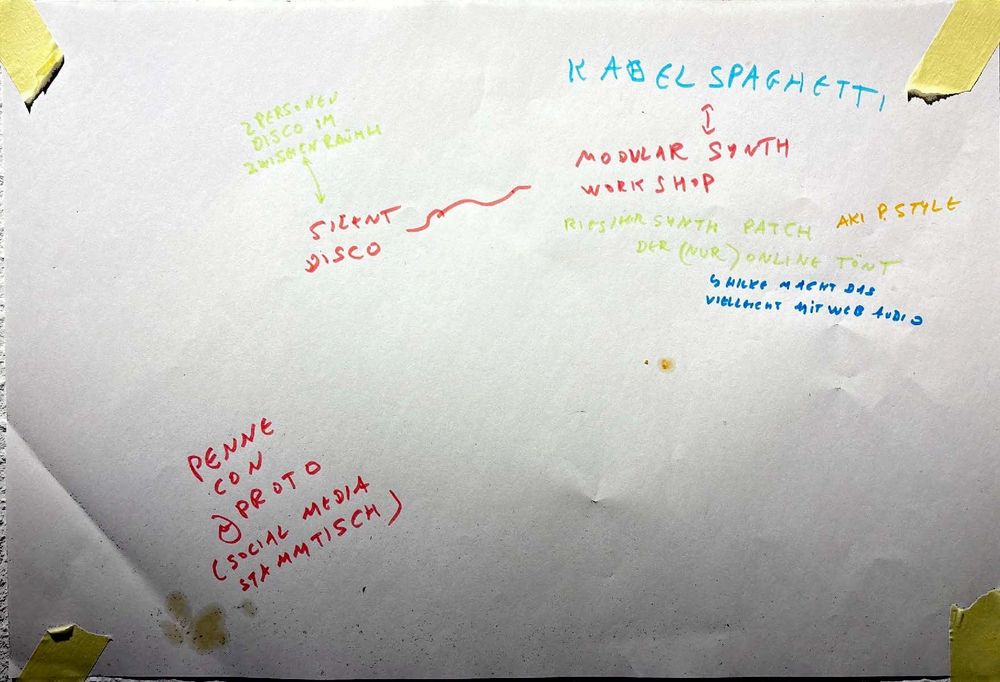 KABELSPAGHETTI
MODULAR SYNTH
WORKSHOP
RIESIGER SYNTH PATCH
DER (NUR) ONLINE TÖNT
AKI P. STYLE
↳ HILKE MACHT DAS
VIELLEICHT MIT WEB AUDIO
2 PERSONEN
DISCO IM
ZWISCHENRAÜMLI
SILENT
DISCO
PENNE
CON
@PROTO
(SOCIAL MEDIA
STAMMTISCH)